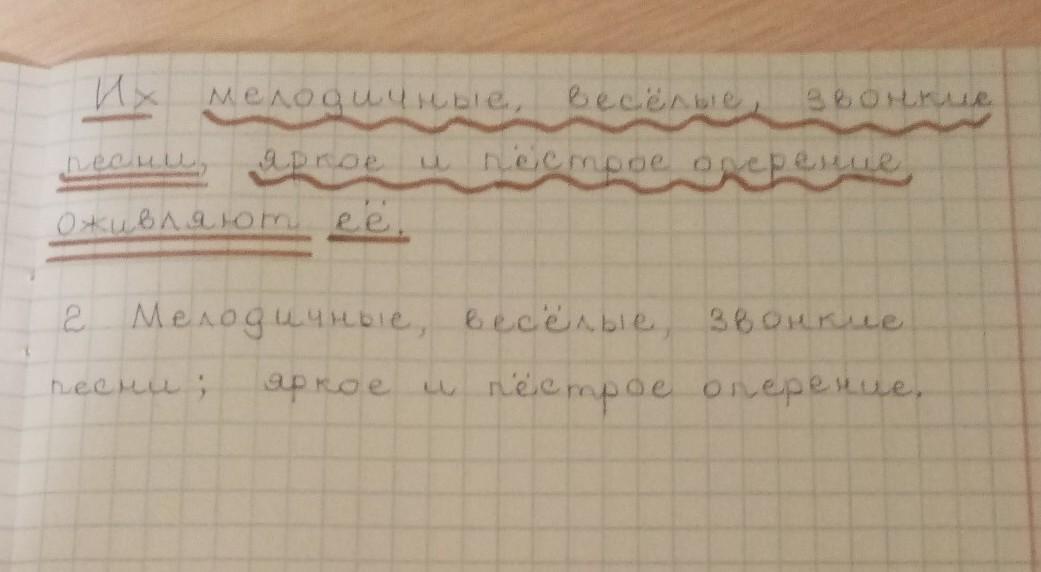 Их мелодичные, весёлые, звонкие
песни, яркое и пёстрое оперение
оживляют её.
2 Мелодичные, весёлые, звонкие
песни; яркое и пёстрое оперение.